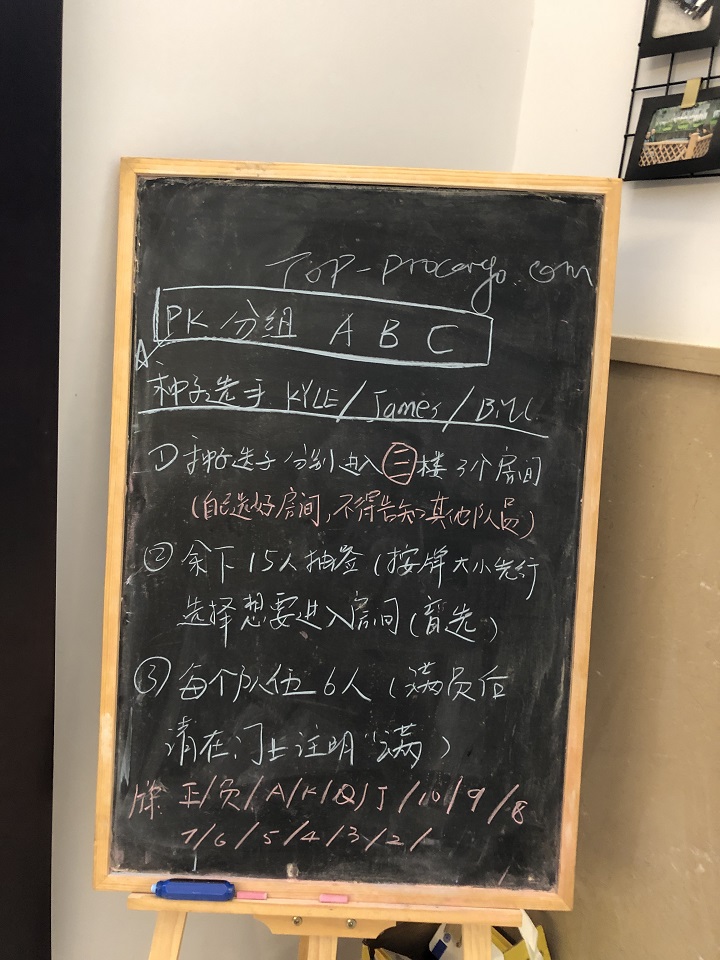 Top-procargo.com
PK 分组 A B C
种子选手 KYLE/James/Bill
① 种子选手分别进入三楼3个房间
(自己选好房间,不得告知其他队员)
② 余下15人抽签(按牌大小先行
选择想要进入房间(盲选)
③ 每个队伍6人(满员后
请在门上注明“满)
牌: 正/负/A/K/Q/J/10/9/8
7/6/5/4/3/2/